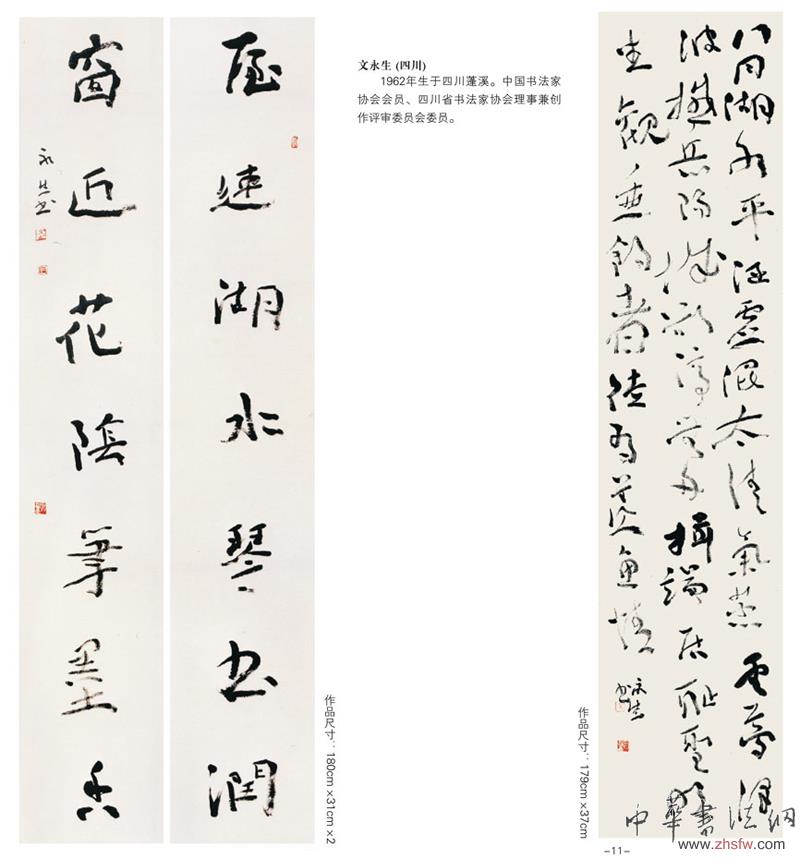 屋連湖水琴書潤
窗近花陰筆墨香
永生書
作品尺寸：180cm×31cm×2
文永生 (四川)
1962年生于四川蓬溪。中国书法家
协会会员、四川省书法家协会理事兼创
作评审委员会委员。
八月湖水平涵虛混太清氣蒸雲夢澤
波撼岳陽城欲濟無舟楫端居恥聖明
坐觀垂釣者徒有羨魚情
永生書
作品尺寸：179cm×37cm
-11-
中華書法網
www.zhsfw.com